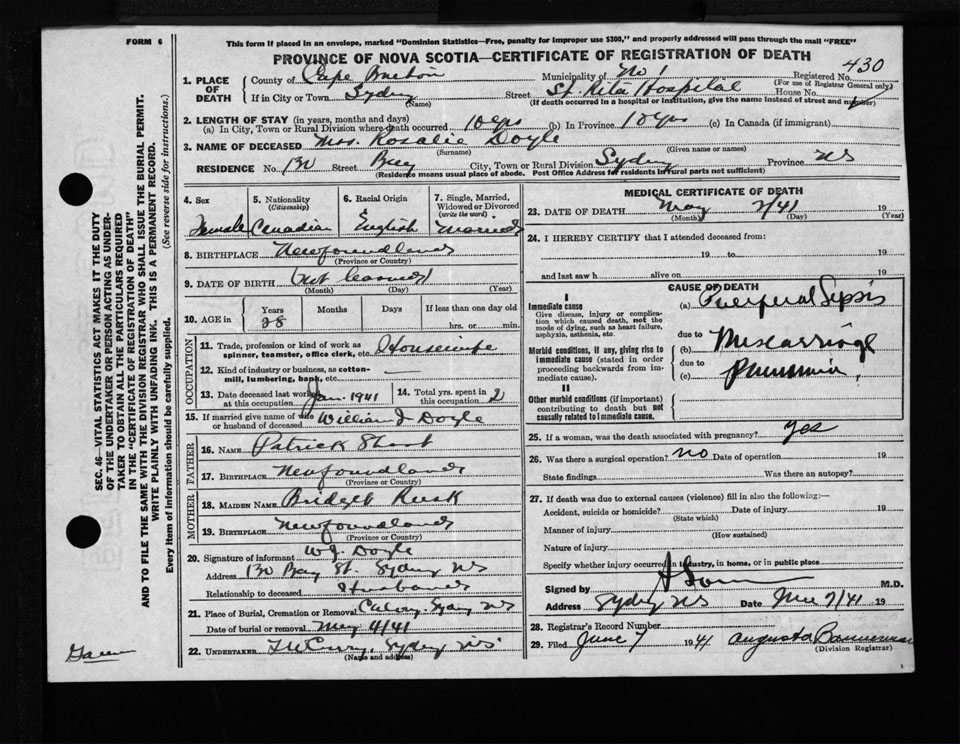 FORM 6
This form if placed in an envelope, marked "Dominion Statistics—Free, penalty for improper use $300," and properly addressed will pass through the mail "FREE"
PROVINCE OF NOVA SCOTIA—CERTIFICATE OF REGISTRATION OF DEATH
430
1. PLACE OF DEATH
County of Cape Breton Municipality of No 1 Registered No.
(For use of Registrar General only)
If in City or Town Sydney Street St. Rita Hospital House No.
(Name) (If death occurred in a hospital or institution, give the name instead of street and number)
2. LENGTH OF STAY (in years, months and days)
(a) In City, Town or Rural Division where death occurred 10 yrs (b) In Province 10 yrs (c) In Canada (if immigrant)
3. NAME OF DECEASED Mrs. Rosalie Doyle
(Surname) (Given name or names)
RESIDENCE No. 130 Street Bay City, Town or Rural Division Sydney Province NS
(Residence means usual place of abode. Post Office Address for residents in rural parts not sufficient)
4. Sex
Female
5. Nationality
(Citizenship)
Canadian
6. Racial Origin
English
7. Single, Married, Widowed or Divorced
(write the word)
Married
8. BIRTHPLACE Newfoundland
(Province or Country)
9. DATE OF BIRTH (not learned)
(Month) (Day) (Year)
10. AGE in
Years Months Days If less than one day
28 hrs. or min.
OCCUPATION
11. Trade, profession or kind of work as spinner, teamster, office clerk, etc. Housewife
12. Kind of industry or business, as cotton-mill, lumbering, bank, etc.
13. Date deceased last worked at this occupation Jan. 1941
14. Total yrs. spent in this occupation 2
15. If married give name of wife or husband of deceased William J Doyle
FATHER
16. NAME Patrick
17. BIRTHPLACE Newfoundland
(Province or Country)
MOTHER
18. MAIDEN NAME Bridgett Rusk
19. BIRTHPLACE Newfoundland
(Province or Country)
20. Signature of informant W.J. Doyle
Address 130 Bay St. Sydney NS
Relationship to deceased Husband
21. Place of Burial, Cremation or Removal Calvary Sydney NS
Date of burial or removal May 4/41
22. UNDERTAKER Sydney NS
(Name and address)
MEDICAL CERTIFICATE OF DEATH
23. DATE OF DEATH May 2/41 19
(Month) (Day) (Year)
24. I HEREBY CERTIFY that I attended deceased from:
19 to 19
and last saw h alive on 19
CAUSE OF DEATH
I
Immediate cause
Give disease, injury or complication which caused death, not the mode of dying, such as heart failure, asphyxia, asthenia, etc.
(a) Puerperal Sepsis
due to
Morbid conditions, if any, giving rise to immediate cause (stated in order proceeding backwards from immediate cause).
(b) Miscarriage
due to
(c) Pneumonia
II
Other morbid conditions (if important) contributing to death but not causally related to immediate cause.
25. If a woman, was the death associated with pregnancy? Yes
26. Was there a surgical operation? NO Date of operation 19
State findings Was there an autopsy?
27. If death was due to external causes (violence) fill in also the following:—
Accident, suicide or homicide? Date of injury 19
(State which)
Manner of injury
(How sustained)
Nature of injury
Specify whether injury occurred in industry, in home, or in public place
Signed by M.D.
Address Sydney NS Date 2/41 19
28. Registrar's Record Number
29. Filed June 7 1941 Augusta Bannerman
(Division Registrar)
SEC. 46—VITAL STATISTICS ACT MAKES IT THE DUTY OF THE UNDERTAKER OR PERSON ACTING AS UNDERTAKER TO OBTAIN ALL THE PARTICULARS REQUIRED IN THE "CERTIFICATE OF REGISTRATION OF DEATH" AND TO FILE THE SAME WITH THE DIVISION REGISTRAR WHO SHALL ISSUE THE BURIAL PERMIT.
WRITE PLAINLY WITH UNFADING INK. THIS IS A PERMANENT RECORD.
Every item of information should be carefully supplied. (See reverse side for instructions.)